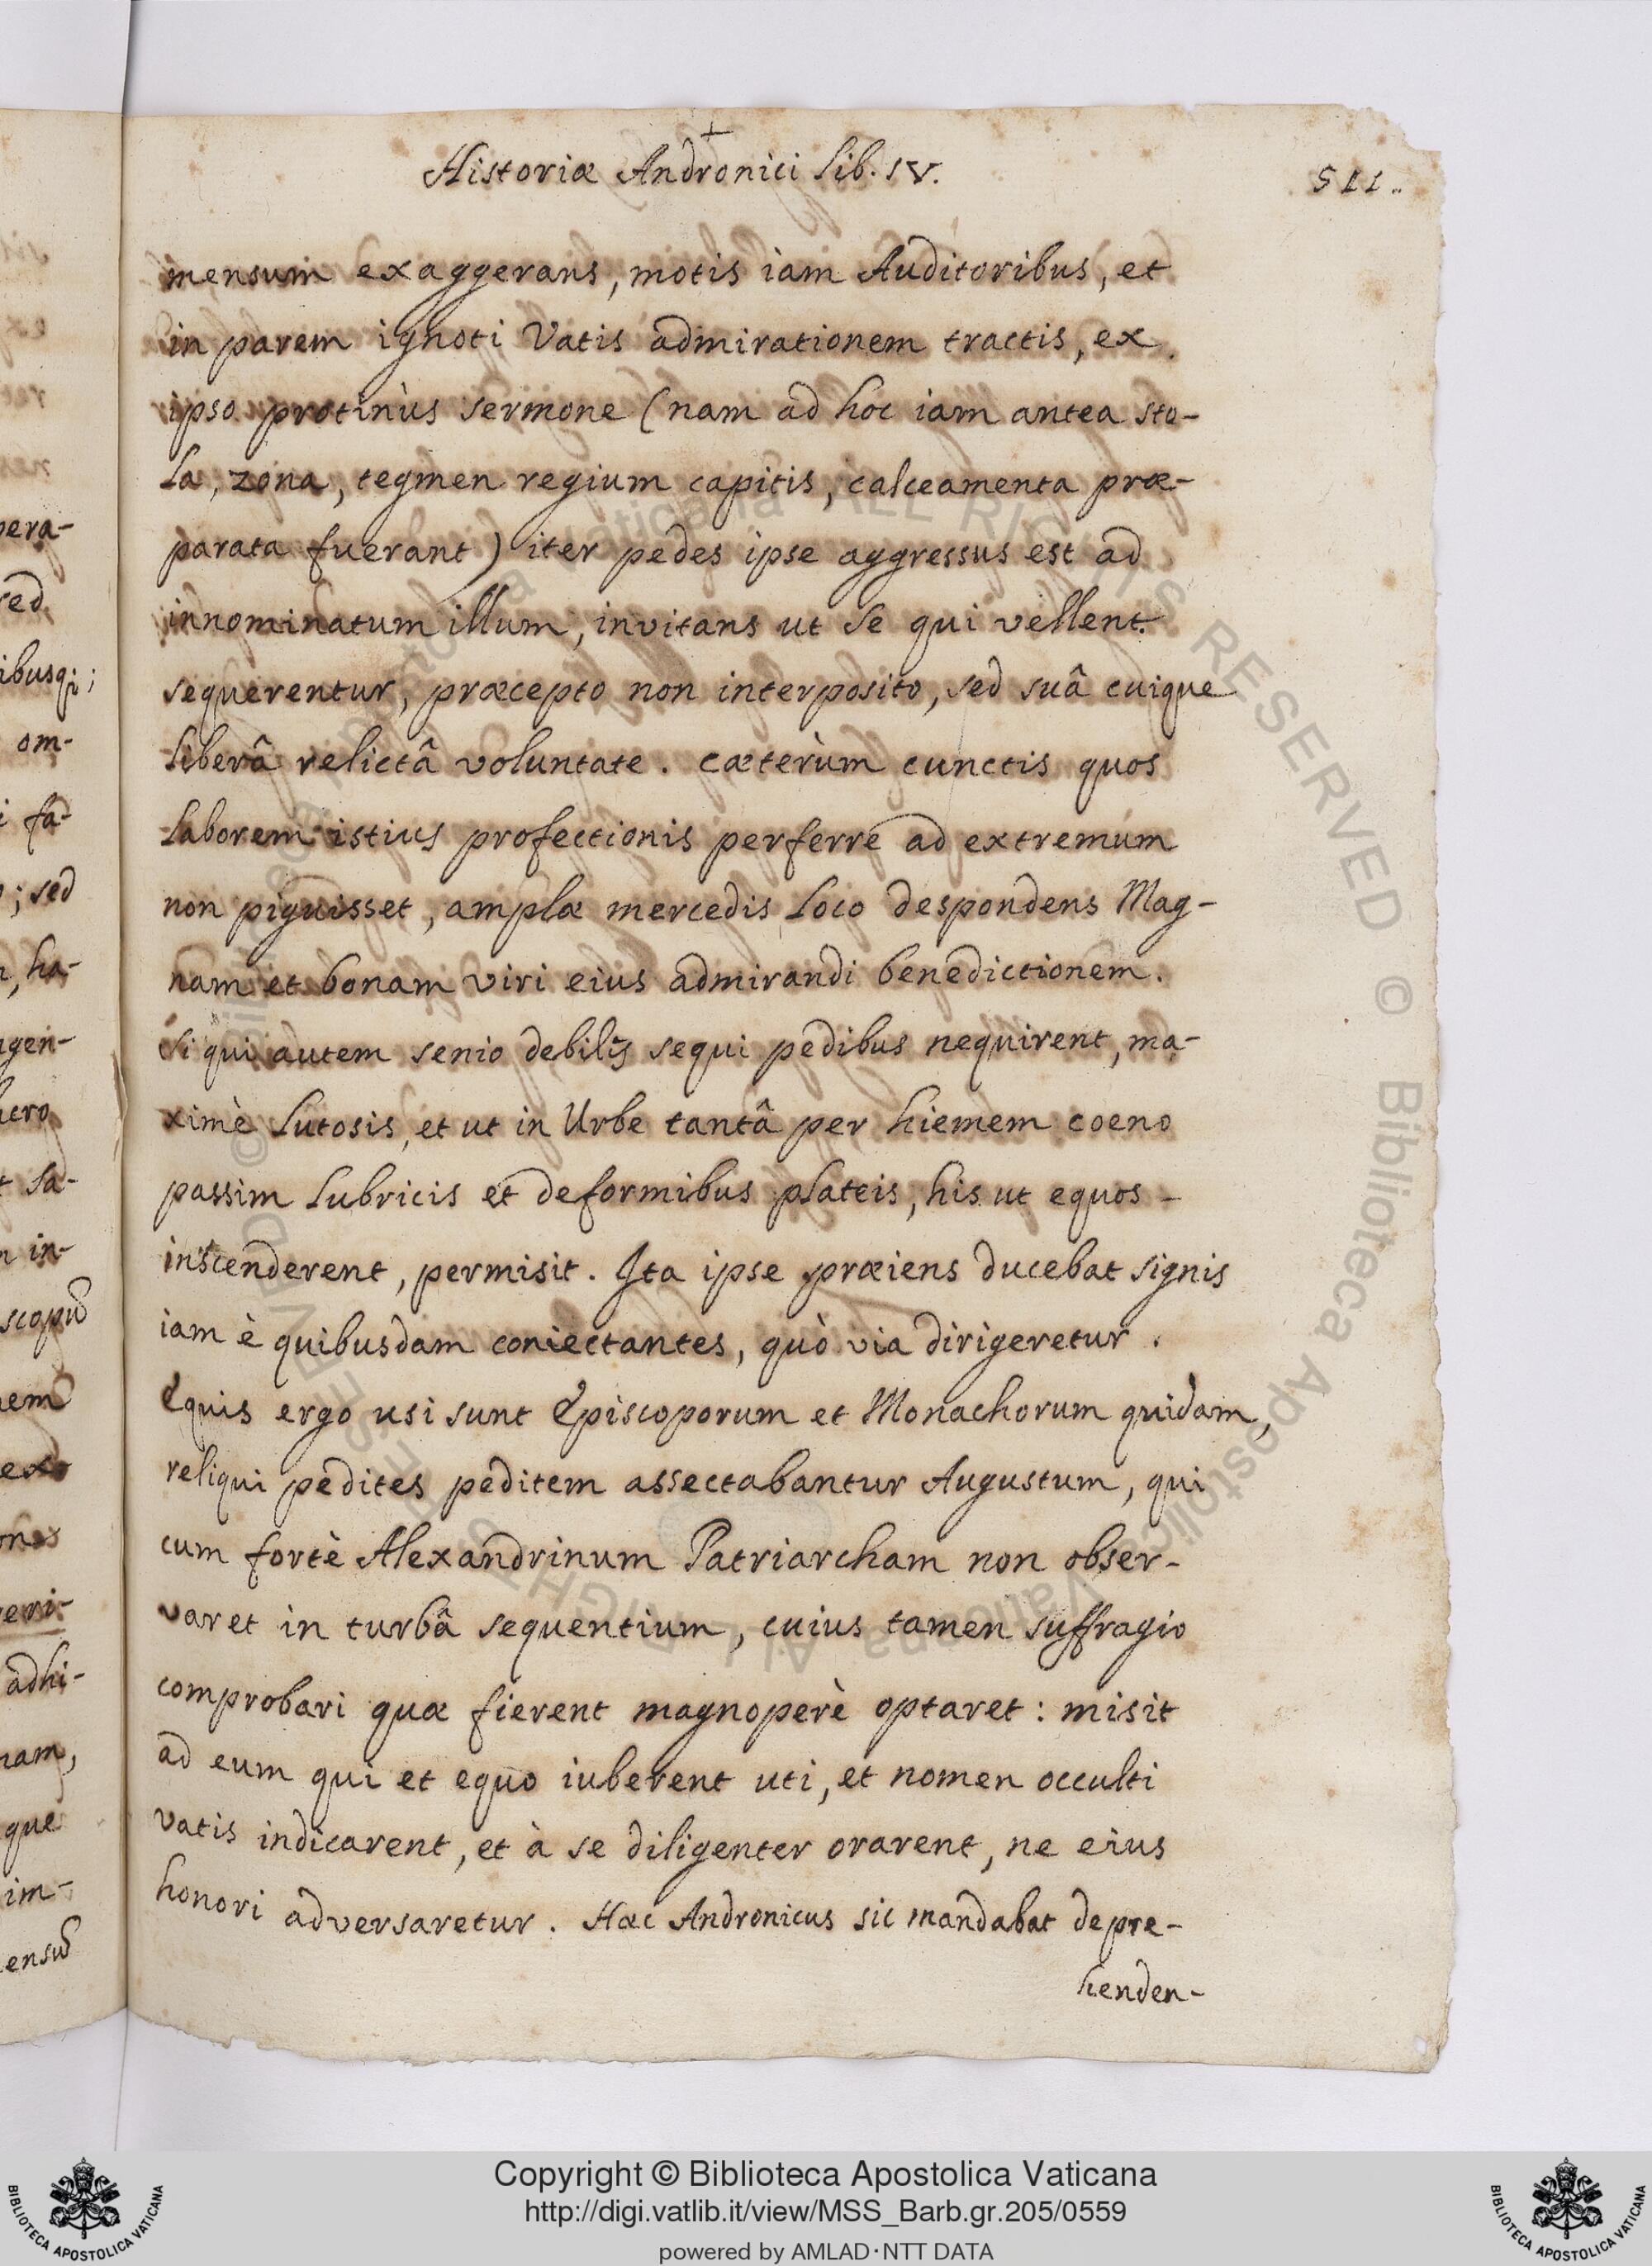 +
Historiæ Andronici Lib. IV.
511..
mensum exaggerans, motis iam Auditoribus, et
in parem ignoti Vatis admirationem tractis, ex
ipso protinùs sermone (nam ad hoc iam antea sto-
la, zona, tegmen regium capitis, calceamenta præ-
parata fuerant) iter pedes ipse aggressus est ad
innominatum illum, invitans ut se qui vellent
sequerentur, præcepto non interposito, sed suâ cuique
liberâ relictâ voluntate. cæterùm cunctis quos
laborem istius profectionis perferre ad extremum
non piguisset, amplæ mercedis loco despondens Mag-
nam et bonam viri eius admirandi benedictionem.
Si qui autem senio debiles sequi pedibus nequirent, ma-
ximè lutosis, et ut in Urbe tantâ per hiemem coeno
passim lubricis et deformibus plateis, his ut equos -
inscenderent, permisit. Ita ipse præiens ducebat signis
iam è quibusdam coniectantes, quò via dirigeretur.
Equis ergo usi sunt Episcoporum et Monachorum quidam,
reliqui pedites peditem assectabantur Augustum, qui
cum fortè Alexandrinum Patriarcham non obser-
varet in turbâ sequentium, cuius tamen suffragio
comprobari quæ fierent magnoperè optaret: misit
ad eum qui et equo iuberent uti, et nomen occulti
vatis indicarent, et à se diligenter orarent, ne eius
honori adversaretur. Hæc Andronicus sic mandabat depre-
henden-
pera-
sed
ibusq;;
om-
fa-
; sed
, ha-
gen-
sa-
in-
adhi-
que
im-
© Biblioteca Apostolica Vaticana ALL RIGHTS RESERVED © Biblioteca Apostolica Vaticana ALL RIGHTS RESERVED
Copyright © Biblioteca Apostolica Vaticana
http://digi.vatlib.it/view/MSS_Barb.gr.205/0559
powered by AMLAD·NTT DATA
BIBLIOTECA APOSTOLICA VATICANA
BIBLIOTECA APOSTOLICA VATICANA